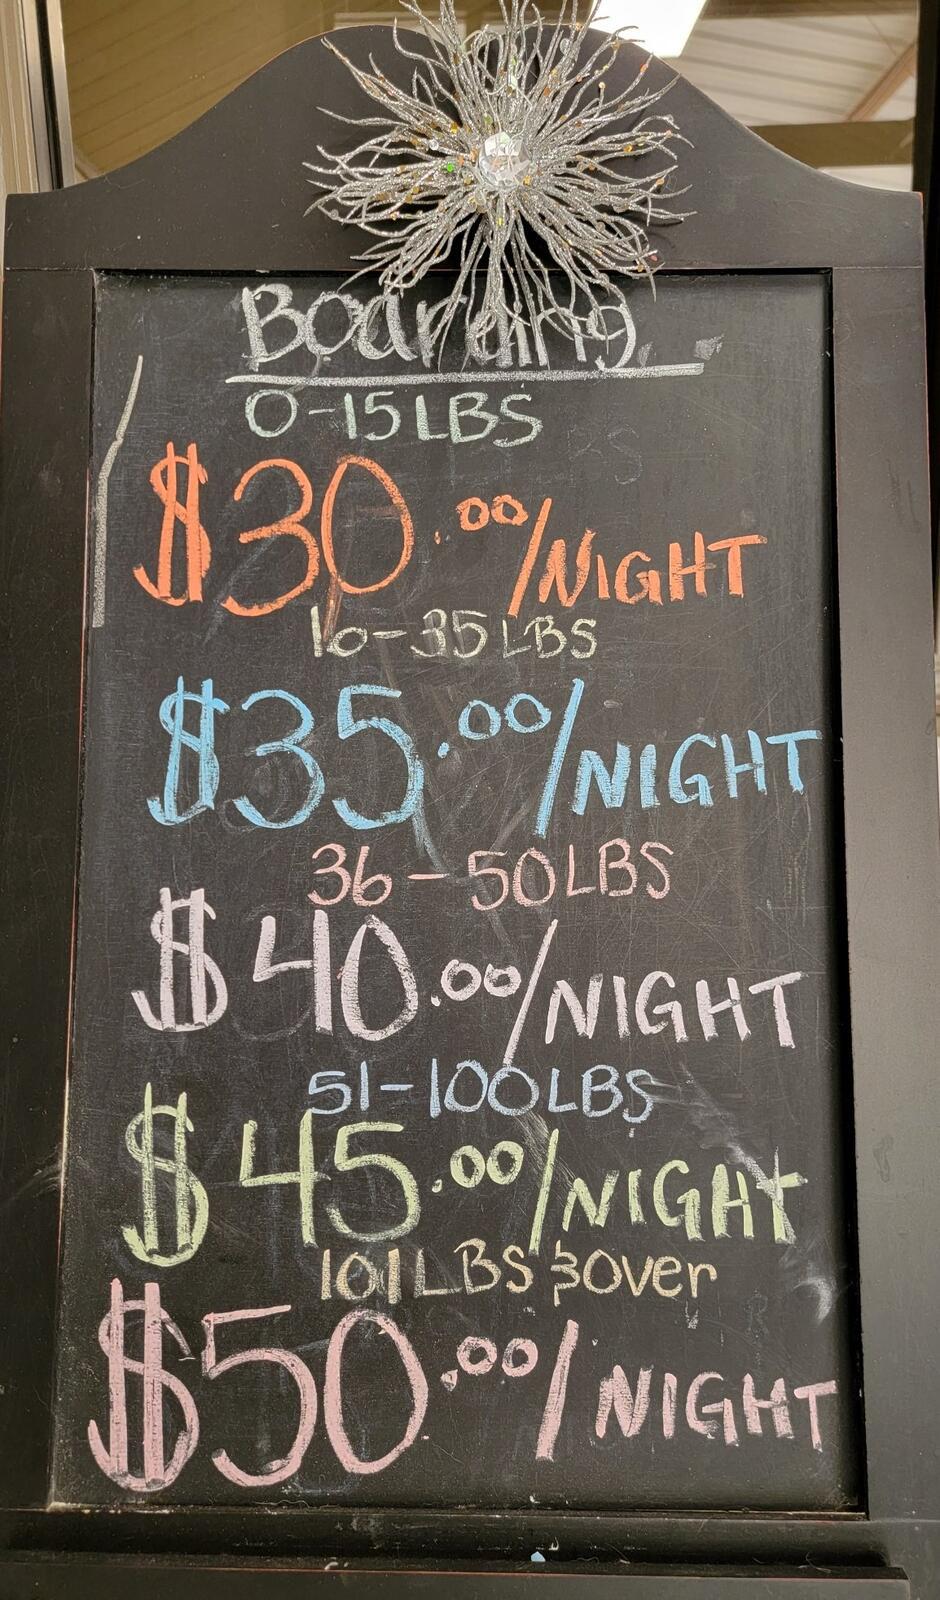 Boarding
0-15 LBS
$30.00/NIGHT
16-35 LBS
$35.00/NIGHT
36-50 LBS
$40.00/NIGHT
51-100 LBS
$45.00/NIGHT
101 LBS & Over
$50.00/NIGHT